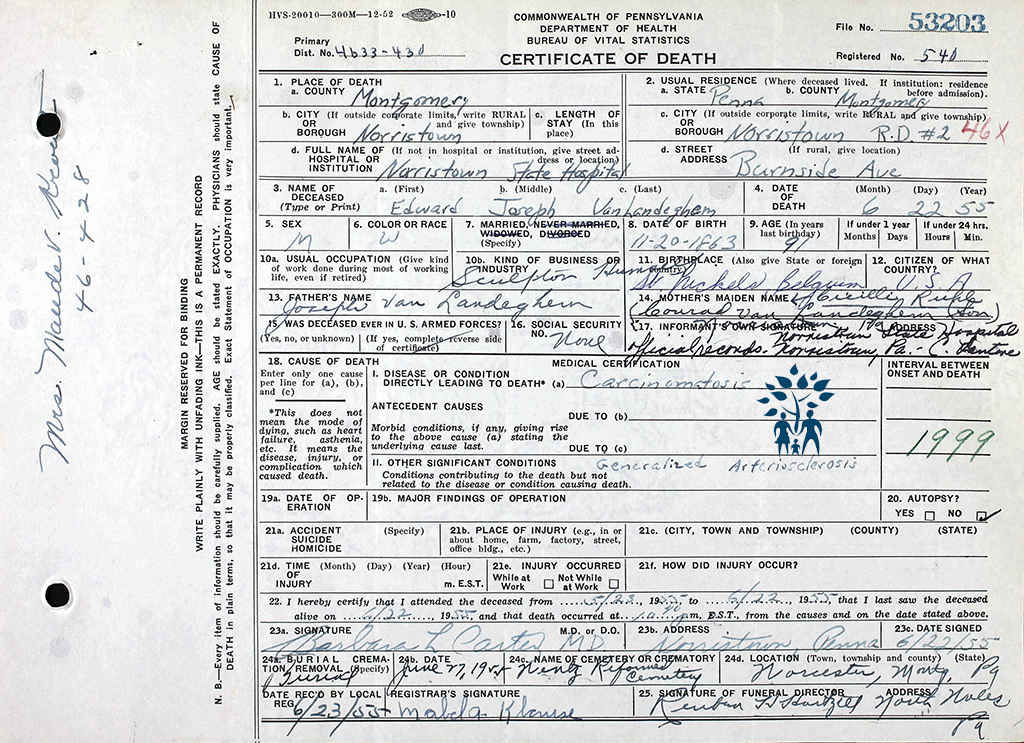 HVS-20010—300M—12-52 -10
COMMONWEALTH OF PENNSYLVANIA
DEPARTMENT OF HEALTH
BUREAU OF VITAL STATISTICS
CERTIFICATE OF DEATH
Primary
Dist. No. 4633-430
File No. 53203
Registered No. 540
1. PLACE OF DEATH
a. COUNTY Montgomery
2. USUAL RESIDENCE (Where deceased lived. If institution: residence before admission).
a. STATE Penna b. COUNTY Montgomery
b. CITY (If outside corporate limits, write RURAL
OR and give township)
BOROUGH Norristown
c. LENGTH OF
STAY (In this
place)
c. CITY (If outside corporate limits, write RURAL and give township)
OR
BOROUGH Norristown R.D. #2 46X
d. FULL NAME OF (If not in hospital or institution, give street address or location)
HOSPITAL OR
INSTITUTION Norristown State Hospital
d. STREET (If rural, give location)
ADDRESS Burnside Ave
3. NAME OF
DECEASED
(Type or Print)
a. (First) b. (Middle) c. (Last)
Edward Joseph VanLandeghem
4. DATE
OF
DEATH
(Month) (Day) (Year)
6 22 55
5. SEX
M
6. COLOR OR RACE
W
7. MARRIED, NEVER MARRIED,
WIDOWED, DIVORCED
(Specify)
8. DATE OF BIRTH
11-20-1863
9. AGE (In years
last birthday)
91
If under 1 year
Months Days
If under 24 hrs.
Hours Min.
10a. USUAL OCCUPATION (Give kind
of work done during most of working
life, even if retired)
10b. KIND OF BUSINESS OR
INDUSTRY
Sculptor
11. BIRTHPLACE (Also give State or foreign
country)
St. Nickels Belgium
12. CITIZEN OF WHAT
COUNTRY?
U.S.A
13. FATHER'S NAME
Joseph Van Landeghem
14. MOTHER'S MAIDEN NAME
(Conrad Van Landeghem (Son)
15. WAS DECEASED EVER IN U. S. ARMED FORCES?
(Yes, no, or unknown) (If yes, complete reverse side
of certificate)
16. SOCIAL SECURITY
NO.
None
17. INFORMANT'S OWN SIGNATURE ADDRESS
Norristown State Hospital
official records. Norristown, Pa.
18. CAUSE OF DEATH
Enter only one cause
per line for (a), (b),
and (c)
*This does not
mean the mode of
dying, such as heart
failure, asthenia,
etc. It means the
disease, injury, or
complication which
caused death.
MEDICAL CERTIFICATION
I. DISEASE OR CONDITION
DIRECTLY LEADING TO DEATH* (a) Carcinomatosis
ANTECEDENT CAUSES
DUE TO (b)
Morbid conditions, if any, giving rise
to the above cause (a) stating the
underlying cause last.
DUE TO (c)
II. OTHER SIGNIFICANT CONDITIONS Generalized Arteriosclerosis
Conditions contributing to the death but not
related to the disease or condition causing death.
INTERVAL BETWEEN
ONSET AND DEATH
1999
19a. DATE OF OP-
ERATION
19b. MAJOR FINDINGS OF OPERATION
20. AUTOPSY?
YES NO ✓
21a. ACCIDENT (Specify)
SUICIDE
HOMICIDE
21b. PLACE OF INJURY (e.g., in or
about home, farm, factory, street,
office bldg., etc.)
21c. (CITY, TOWN AND TOWNSHIP) (COUNTY) (STATE)
21d. TIME (Month) (Day) (Year) (Hour)
OF
INJURY m. EST.
21e. INJURY OCCURRED
While at Work Not While at Work
21f. HOW DID INJURY OCCUR?
22. I hereby certify that I attended the deceased from 5/23, 1955 to 6/22, 1955, that I last saw the deceased
alive on 6/22, 1955, and that death occurred at m., E.S.T., from the causes and on the date stated above.
23a. SIGNATURE M.D. or D.O.
Barbara L. Carter M.D.
23b. ADDRESS
Norristown, Penna
23c. DATE SIGNED
6/22/55
24a. BURIAL CREMA-
TION, REMOVAL (Specify)
Burial
24b. DATE
June 27, 1955
24c. NAME OF CEMETERY OR CREMATORY
Wentz Reformed Cemetery
24d. LOCATION (Town, township and county) (State)
Worcester, Montg, Pa
DATE REC'D BY LOCAL
REG.
6/23/55
REGISTRAR'S SIGNATURE
25. SIGNATURE OF FUNERAL DIRECTOR ADDRESS
North Wales
Pa
N. B.—Every item of information should be carefully supplied. AGE should be stated EXACTLY. PHYSICIANS should state CAUSE OF
DEATH in plain terms, so that it may be properly classified. Exact Statement of OCCUPATION is very important.
WRITE PLAINLY WITH UNFADING INK—THIS IS A PERMANENT RECORD
MARGIN RESERVED FOR BINDING
Mrs. Maude V.
46-4-28